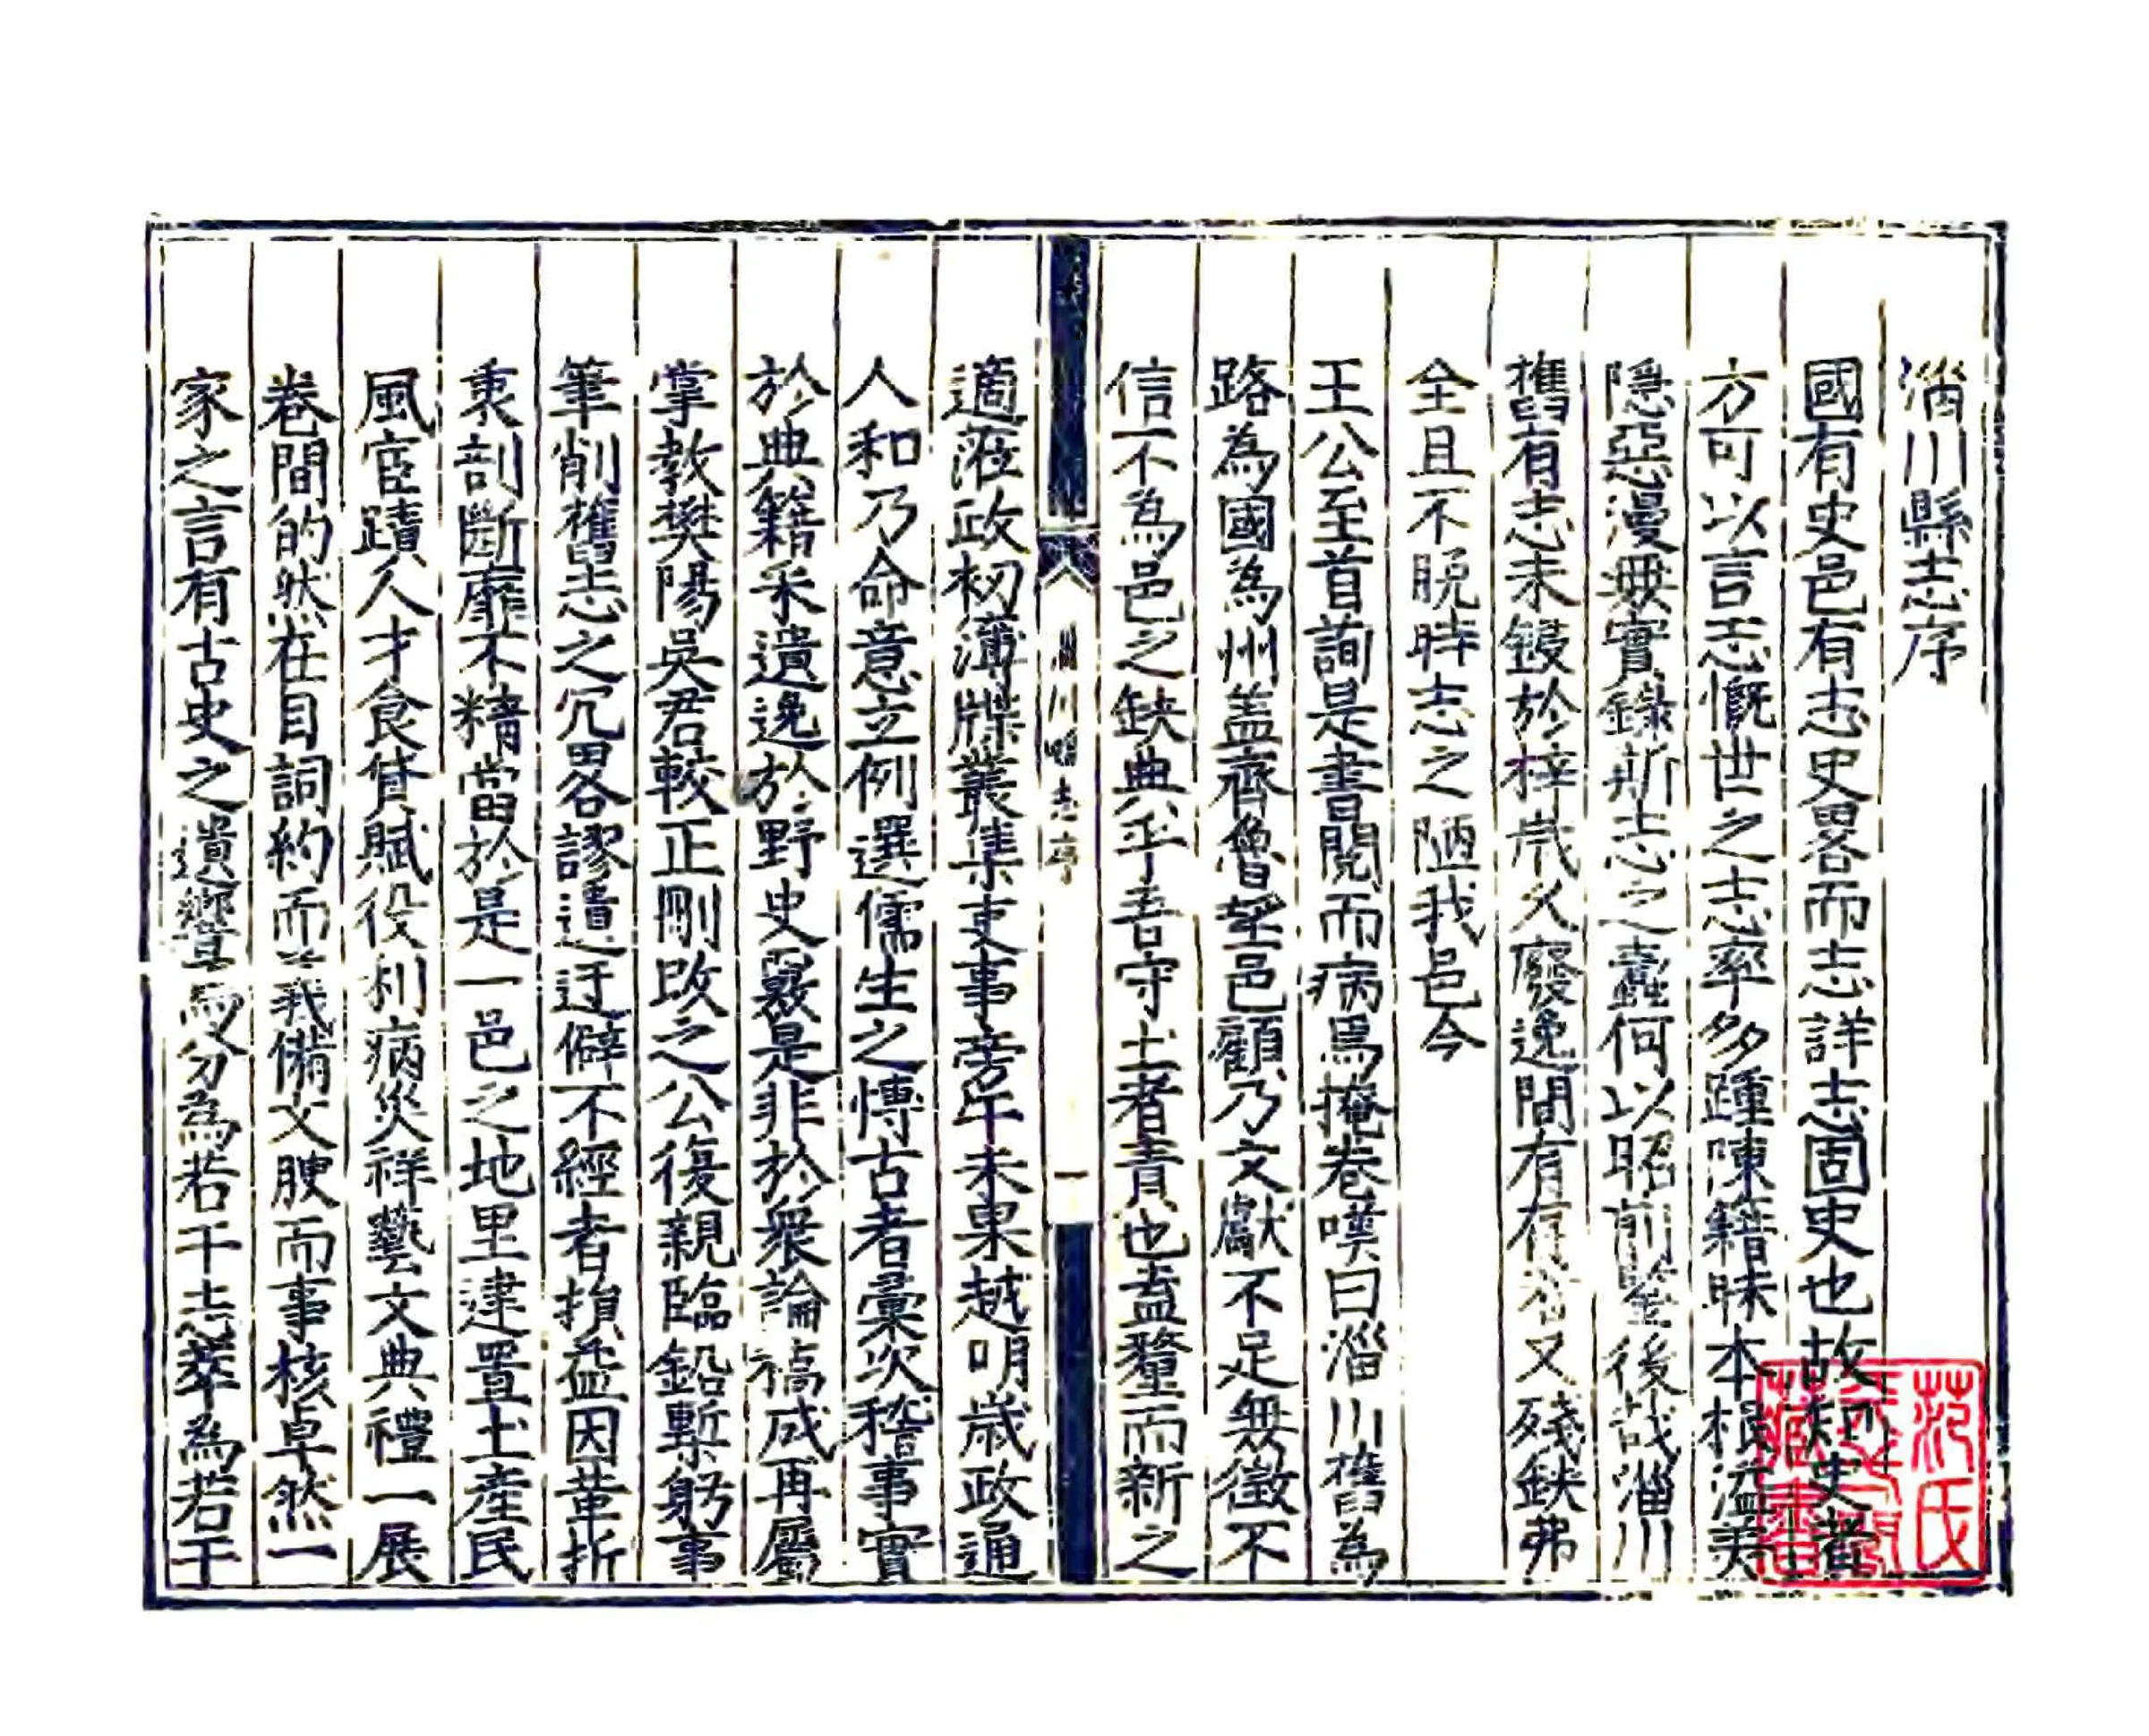 淄川縣志序
國有史邑有志史畧而志詳志固史也故知史者
方可以言志慨世之志率多踵陳籍昧本根溢美
隱惡漫無實錄斯志之蠹何以昭前鑒後哉淄川
舊有志未鋟於梓歲久廢逸間有存者又殘缺弗
全且不脫時志之陋我邑今
王公至首詢是書閱而病焉掩卷嘆曰淄川舊為
路為國為州盖齊魯望邑顧乃文獻不足無徵不
信不為邑之缺典乎吾守土者責也盍釐而新之
川縣志序
一
適涖政初簿牒叢集吏事旁午未果越明歲政通
人和乃命意立例選儒生之博古者彙次稽事實
於典籍采遺逸於野史覈是非於衆論稿成再屬
掌教樊陽吳君較正刪改之公復親臨鉛槧躬事
筆削舊志之冗畧謬遺迂僻不經者損益因革折
衷剖斷靡不精當於是一邑之地里建置土產民
風宦蹟人才食貨賦役利病災祥藝文典禮一展
卷間的然在目詞約而義備文腴而事核卓然一
家之言有古史之遺響焉分為若干志萃為若干
范氏天一閣藏書